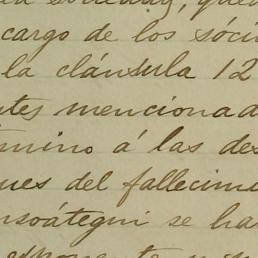 la sociedad, qued
cargo de los sóci
la cláusula 12
ntes mencionad
érmino á las des
ues del fallecimi
nsoátegui se ha